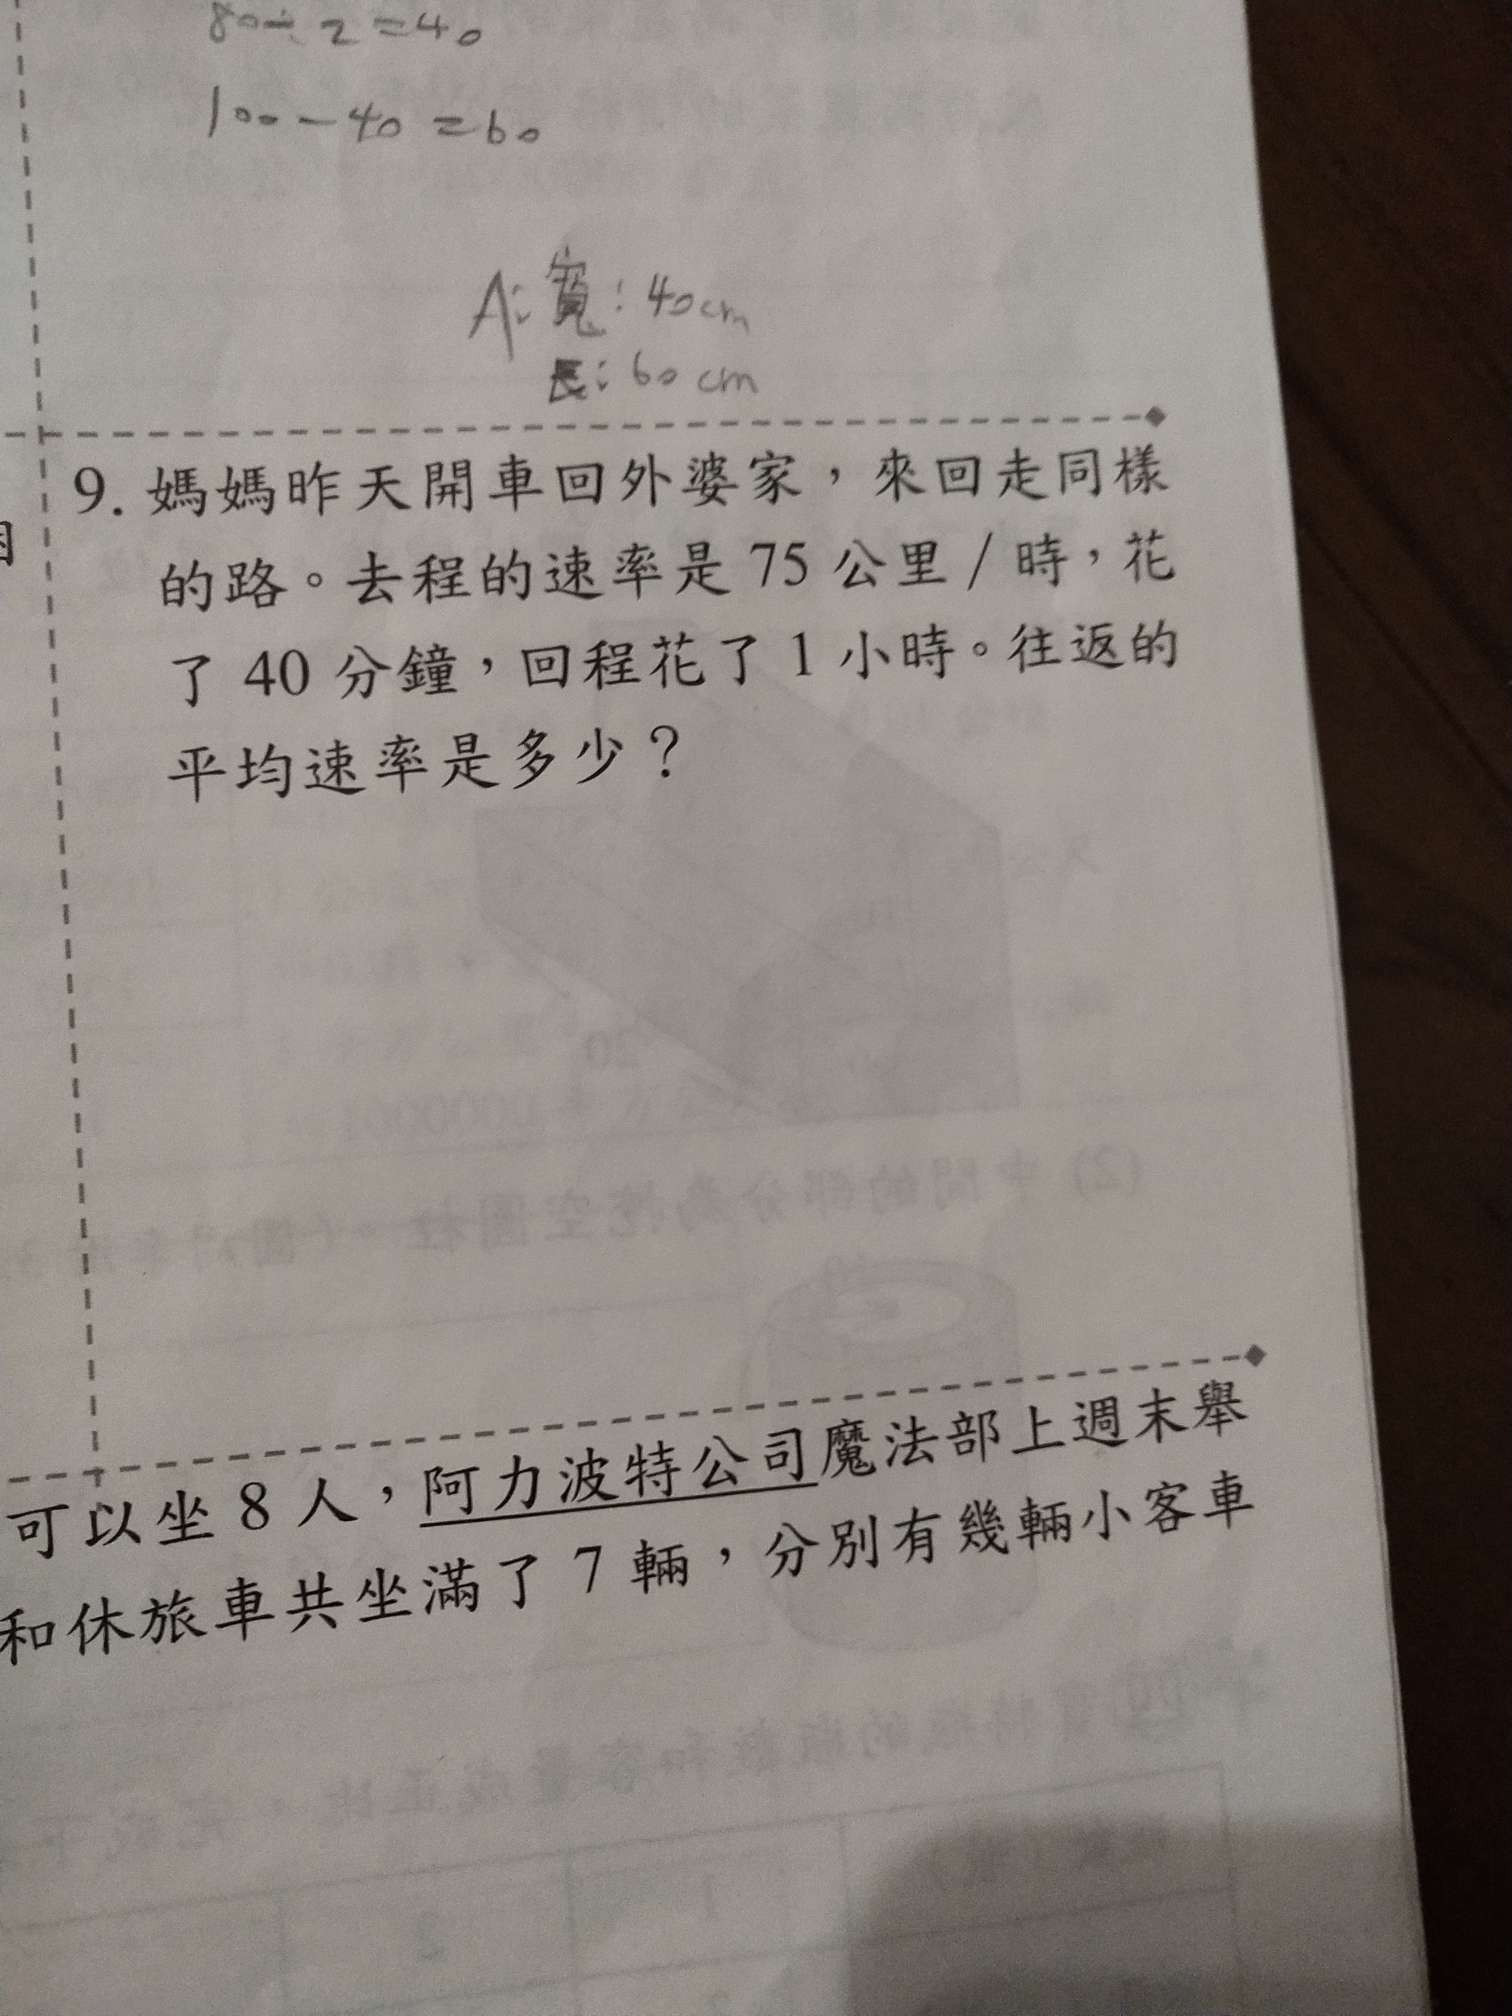 80÷2=40
100-40=60
A:寬:40cm
長:60cm
9. 媽媽昨天開車回外婆家，來回走同樣
的路。去程的速率是 75 公里/時，花
了 40 分鐘，回程花了 1 小時。往返的
平均速率是多少?
可以坐 8 人，阿力波特公司魔法部上週末舉
和休旅車共坐滿了 7 輛，分別有幾輛小客車